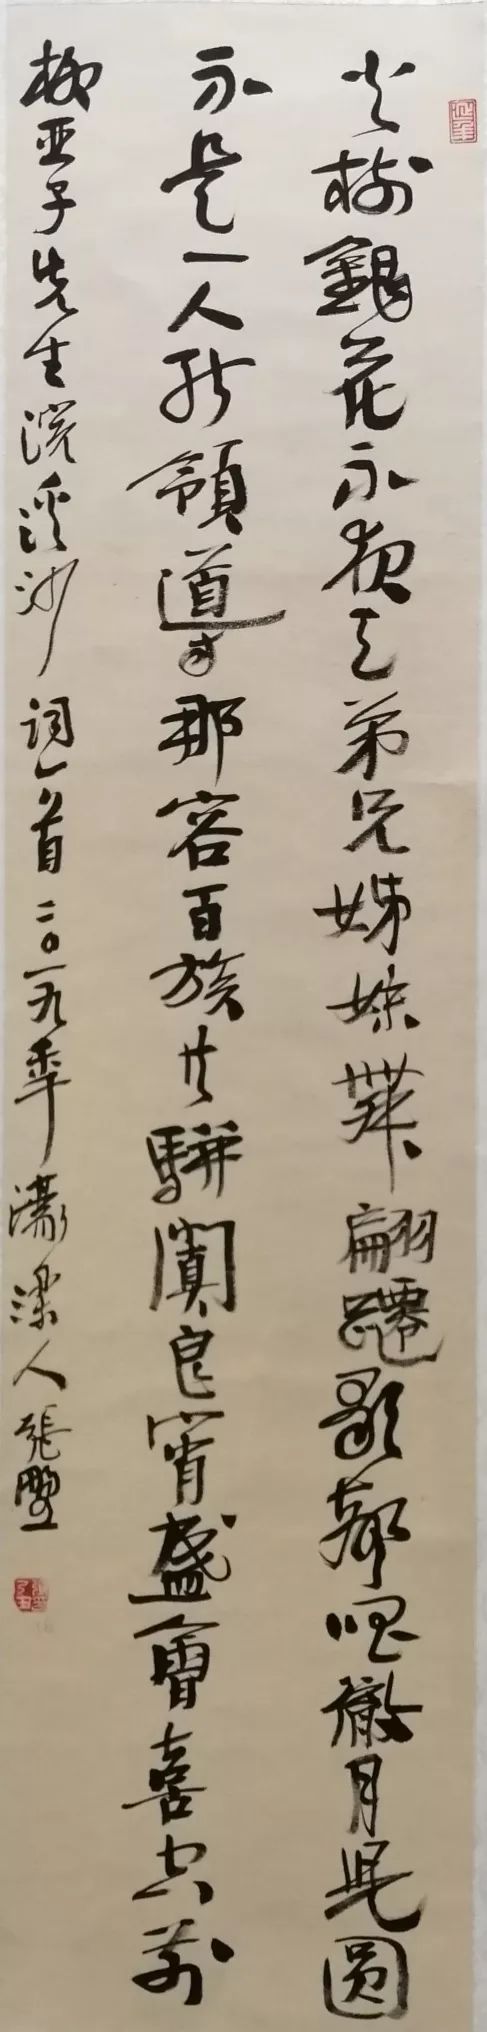 火樹銀花不夜天弟兄姊妹舞翩躚歌聲唱徹月兒圓
不是一人能領導那容百族共駢闐良宵盛會喜空前
柳亚子先生浣溪沙詞一首二〇一九年濠梁人張